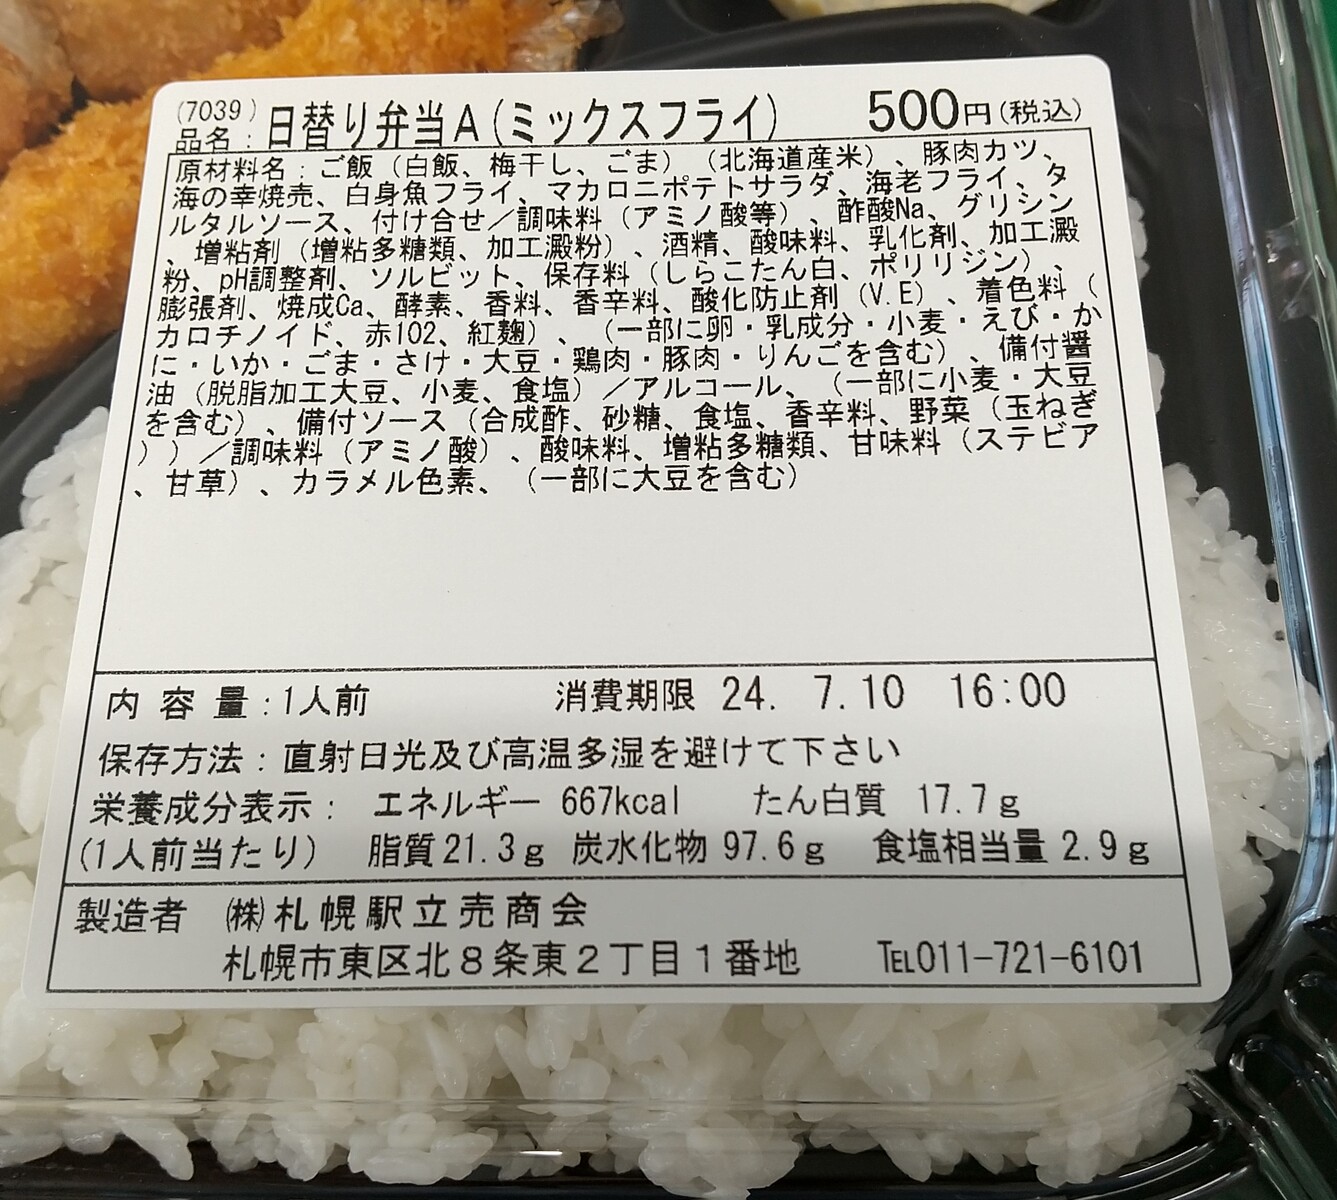 (7039)
品名:日替り弁当A(ミックスフライ) 500円(税込)
原材料名:ご飯(白飯、梅干し、ごま)(北海道産米)、豚肉カツ、
海の幸焼売、白身魚フライ、マカロニポテトサラダ、海老フライ、タ
ルタルソース、付け合せ/調味料(アミノ酸等)、酢酸Na、グリシン
、増粘剤(増粘多糖類、加工澱粉)、酒精、酸味料、乳化剤、加工澱
粉、pH調整剤、ソルビット、保存料(しらこたん白、ポリリジン)、
膨張剤、焼成Ca、酵素、香料、香辛料、酸化防止剤(V.E)、着色料(
カロチノイド、赤102、紅麹)、(一部に卵・乳成分・小麦・えび・か
に・いか・ごま・さけ・大豆・鶏肉・豚肉・りんごを含む)、備付醤
油(脱脂加工大豆、小麦、食塩)/アルコール、(一部に小麦・大豆
を含む)、備付ソース(合成酢、砂糖、食塩、香辛料、野菜(玉ねぎ
))/調味料(アミノ酸)、酸味料、増粘多糖類、甘味料(ステビア
、甘草)、カラメル色素、(一部に大豆を含む)
内容量:1人前 消費期限 24. 7.10 16:00
保存方法:直射日光及び高温多湿を避けて下さい
栄養成分表示: エネルギー 667kcal たん白質 17.7g
(1人前当たり) 脂質21.3g 炭水化物 97.6g 食塩相当量 2.9g
製造者 ㈱札幌駅立売商会
札幌市東区北8条東2丁目1番地 TEL011-721-6101